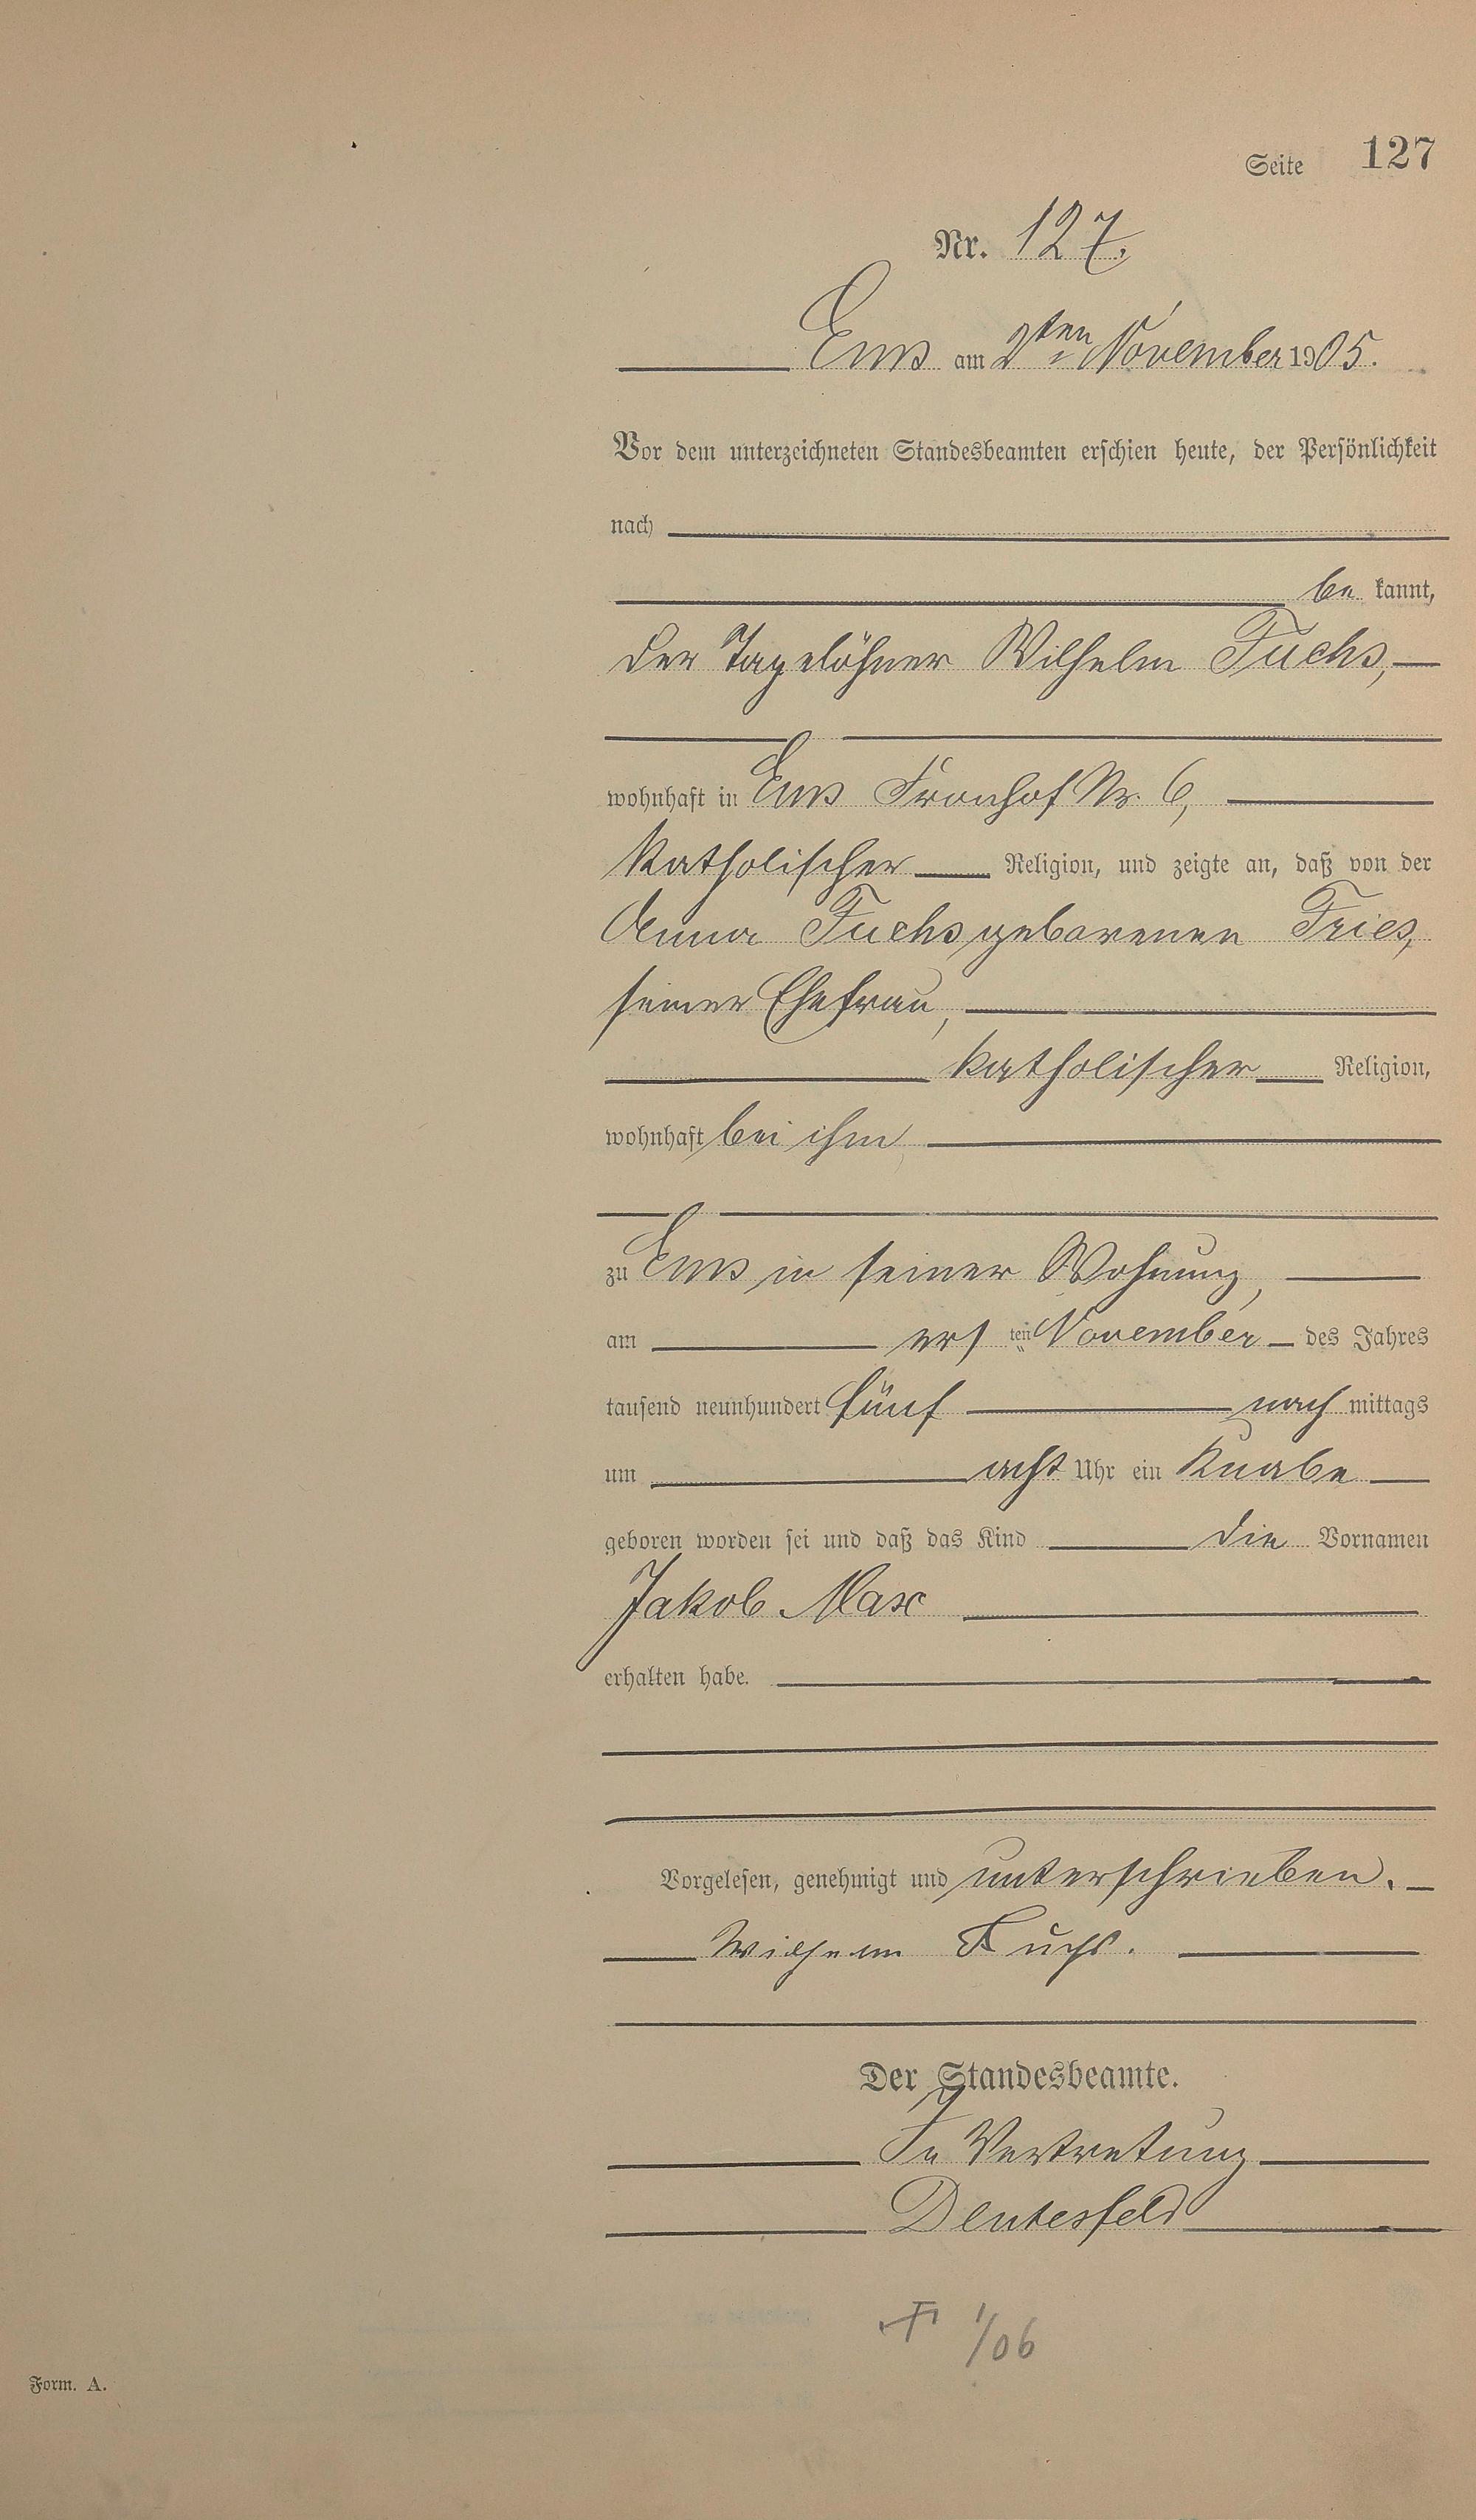 Seite 127
Nr. 127.
Ems am 2ten November 1905.
Vor dem unterzeichneten Standesbeamten erschien heute, der Persönlichkeit
nach
be kannt,
der Tagelöhner Wilhelm Fuchs,
wohnhaft in Ems Fronhof Nr. 6,
katholischer Religion, und zeigte an, daß von der
Anna Fuchs geborenen Fries,
seiner Ehefrau,
katholischer Religion,
wohnhaft bei ihm,
zu Ems in seiner Wohnung,
am ersten November des Jahres
tausend neunhundert fünf nach mittags
um acht Uhr ein Knabe
geboren worden sei und daß das Kind die Vornamen
Jakob Max
erhalten habe.
Vorgelesen, genehmigt und unterschrieben.
Wilhelm Fuchs.
Der Standesbeamte.
In Vertretung
† 1/06
Form. A.